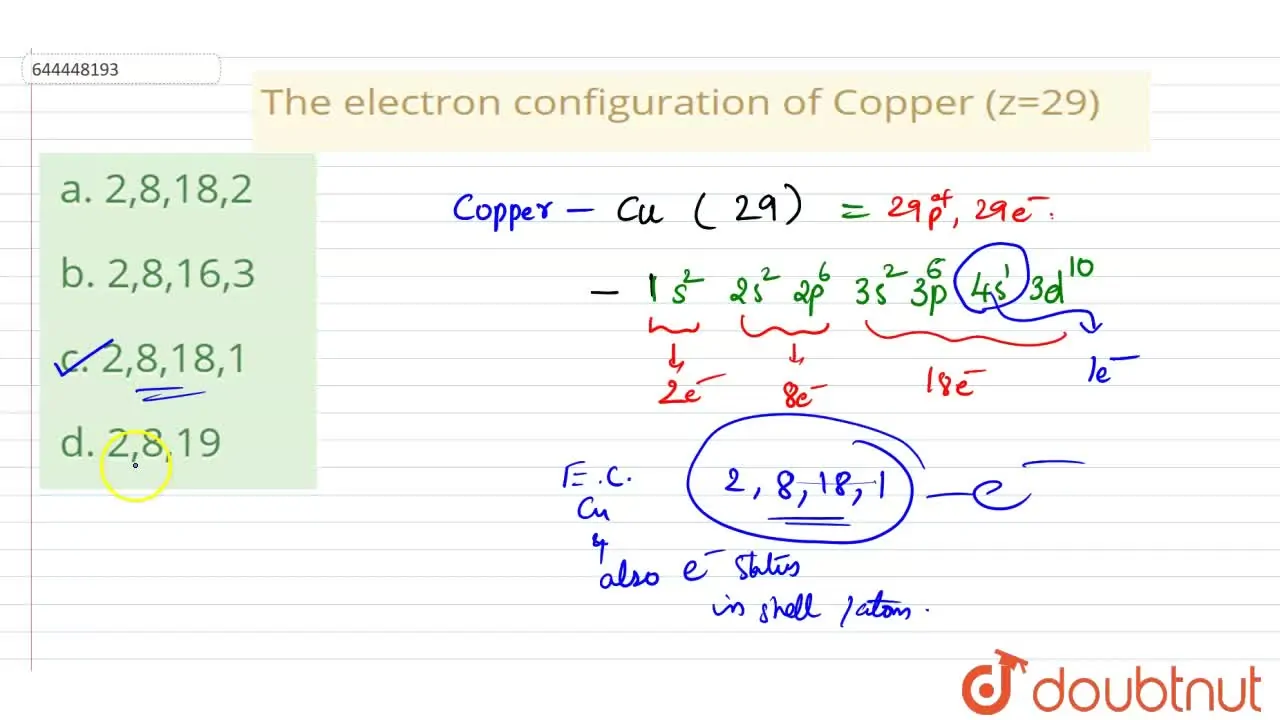 644448193
The electron configuration of Copper (z=29)
a. 2,8,18,2
b. 2,8,16,3
c. 2,8,18,1
d. 2,8,19
Copper – Cu (29) = 29p⁺, 29e⁻.
– 1s² 2s² 2p⁶ 3s² 3p⁶ 4s¹ 3d¹⁰
2e⁻ 8e⁻ 18e⁻ 1e⁻
E.C. 2, 8, 18, 1 – e⁻
Cu
also e⁻ status
in shell / atom.
doubtnut